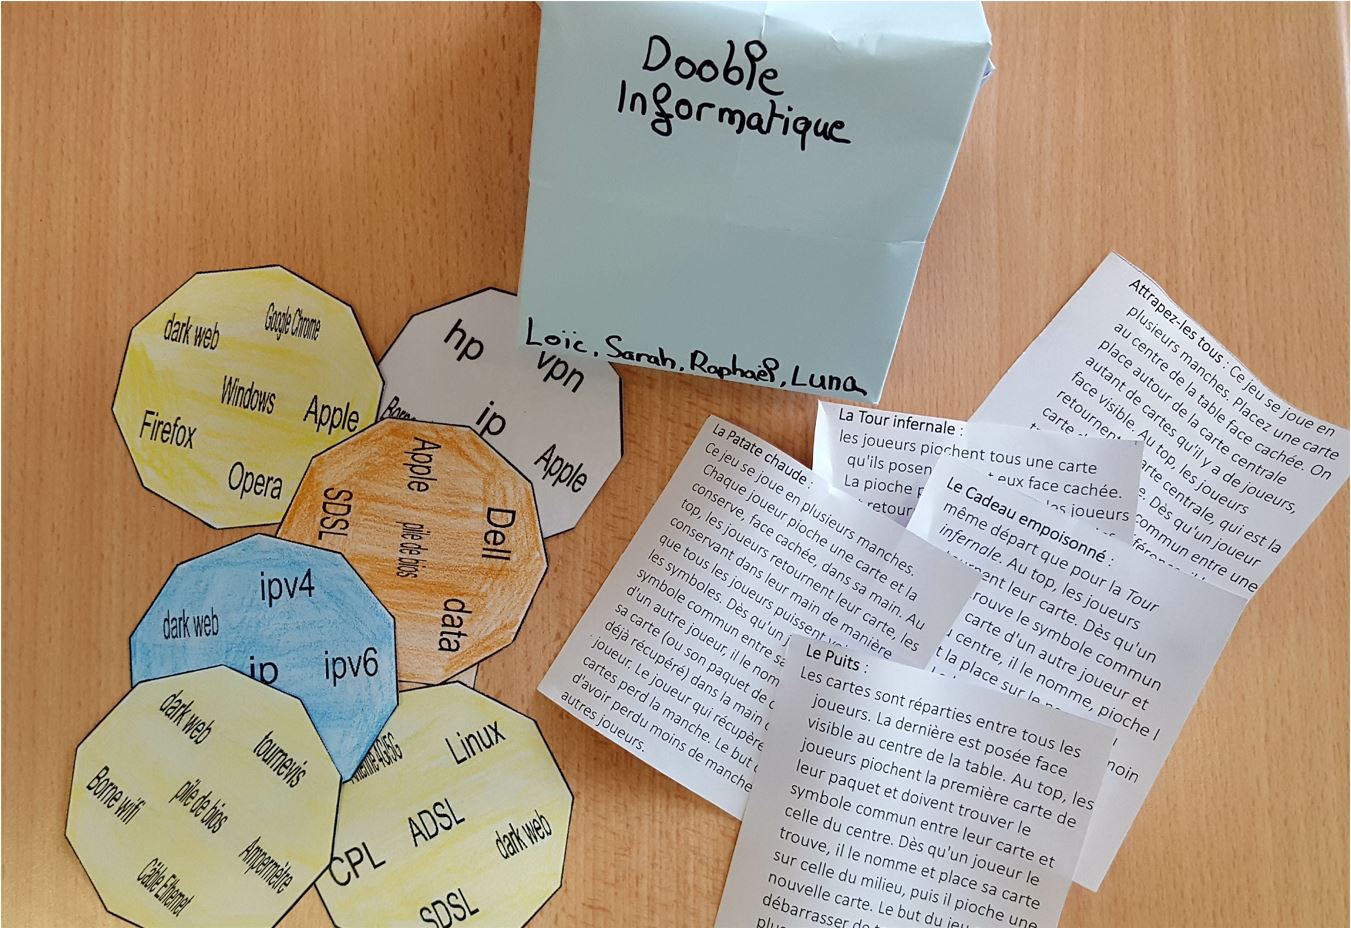 Dooble
Informatique
Loïc, Sarah, Raphaël, Luna
dark web
Google Chrome
Windows
Apple
Firefox
Opera
hp
vpn
ip
Apple
Apple
SDSL
pile de bios
Dell
data
ipv4
dark web
ip
ipv6
dark web
tournevis
Borne wifi
pile de bios
Ampermetre
Câble Ethernet
Linux
ADSL
dark web
CPL
SDSL
La Patate chaude :
Ce jeu se joue en plusieurs manches.
Chaque joueur pioche une carte et la
conserve, face cachée, dans sa main. Au
top, les joueurs retournent leur carte, les
conservant dans leur main de manière
que tous les joueurs puissent
les symboles. Dès qu'un
symbole commun entre
d'un autre joueur, il le
sa carte (ou son paquet de
déjà récupéré) dans la main
joueur. Le joueur qui récupère
cartes perd la manche. Le but
d'avoir perdu moins de manche
autres joueurs.
La Tour infernale :
les joueurs piochent tous une carte
qu'ils posen eux face cachée.
La pioche
retour les joueurs
Le Cadeau empoisonné :
même départ que pour la Tour
infernale. Au top, les joueurs
leur carte. Dès qu'un
le symbole commun
carte d'un autre joueur et
centre, il le nomme, pioche l
et la place sur le
moin
Attrapez-les tous : Ce jeu se joue en
plusieurs manches. Placez une carte
au centre de la table face cachée. On
place autour de la carte centrale
autant de cartes qu'il y a de joueurs,
face visible. Au top, les joueurs
retournent
carte centrale, qui est la
Dès qu'un joueur
commun entre une
Le Puits :
Les cartes sont réparties entre tous les
joueurs. La dernière est posée face
visible au centre de la table. Au top, les
joueurs piochent la première carte de
leur paquet et doivent trouver le
symbole commun entre leur carte et
celle du centre. Dès qu'un joueur le
trouve, il le nomme et place sa carte
sur celle du milieu, puis il pioche une
nouvelle carte. Le but du jeu
débarrasser de